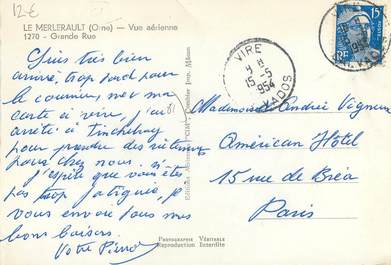 12€
LE MERLERAULT (Orne) — Vue aérienne
1270 - Grande Rue
Suis très bien
arrivé, trop tard pour
le courrier, met ma
carte à Vire, j'ai
arrêté à Tinchebray
pour prendre des
pour chez nous.
J'espère que vous n'êtes
pas trop fatiguée, je
vous envoie tous mes
bons baisers.
Votre Pierrot
VIRE
4 H
15-5
1954
CALVADOS
15F
RF
Mademoiselle Andrée Vagneur
American Hôtel
15 rue de Bréa
Paris
PHOTOGRAPHIE VÉRITABLE
Reproduction Interdite